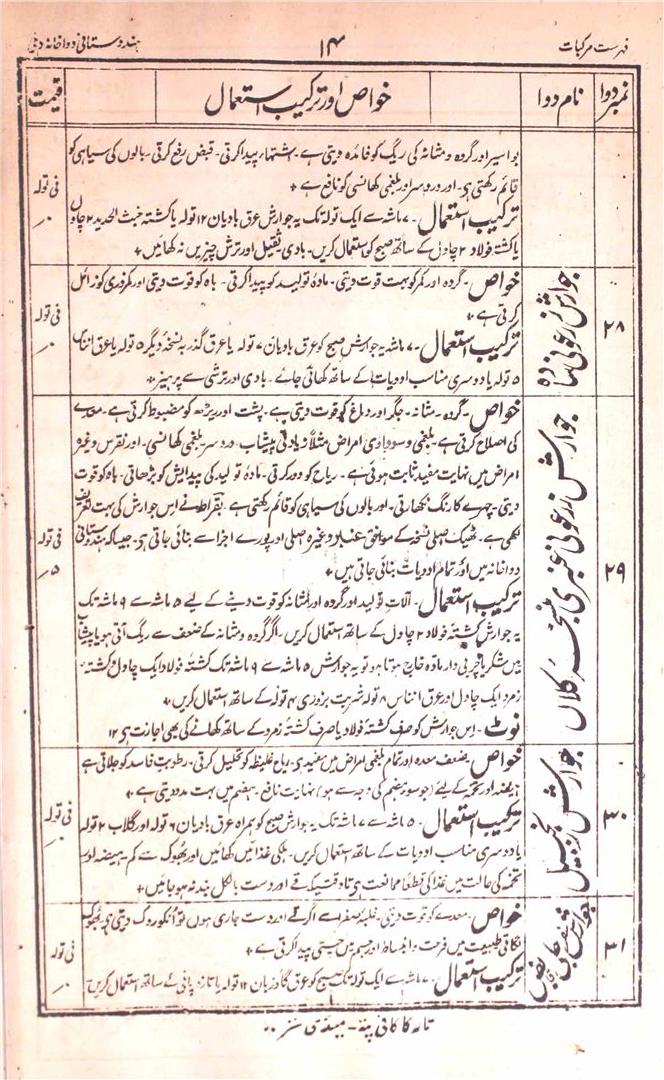 فہرست مرکبات
۱۴
ہندوستانی دواخانہ دہلی
نمبر دوا
نام دوا
خواص اور ترکیب استعمال
قیمت
بواسیر اور گردہ و مثانہ کی ریگ کو فائدہ دیتی ہے۔ اشتہاء پیدا کرتی۔ قبض رفع کرتی۔ بالوں کی سیاہی کو
قائم رکھتی ہے۔ اور درد سر اور بلغمی کھانسی کو نافع ہے +
ترکیب استعمال۔ ۷ ماشہ سے ایک تولہ تک یہ جوارش عرق بادیان ۱۲ تولہ یا کشتہ خبث الحدید ۲ چاول
یا کشتہ فولاد ۲ چاول کے ساتھ صبح کو استعمال کریں۔ بادی ثقیل اور ترش چیزیں نہ کھائیں +
فی تولہ
۲۸
جوارش زرعونی سادہ
خواص۔ گردہ اور کمر کو بہت قوت دیتی۔ مادۂ تولید کو پیدا کرتی۔ باہ کو قوت دیتی اور کمزوری کو زائل
کرتی ہے +
ترکیب استعمال۔ ۷ ماشہ یہ جوارش صبح کو عرق بادیان ۷ تولہ یا عرق گذر بہ نسخہ دیگر ۵ تولہ یا عرق انناس
۵ تولہ یا دوسری مناسب ادویات کے ساتھ کھائی جائے۔ بادی اور ترشی سے پرہیز +
فی تولہ
۲۹
جوارش زرعونی عنبری بنسخہ کلاں
خواص۔ گردہ۔ مثانہ۔ جگر اور دماغ کو قوت دیتی ہے۔ پشت اور ریڑھ کو مضبوط کرتی ہے۔ معدے
کی اصلاح کرتی ہے۔ بلغمی و سوداوی امراض مثلاً زیادتی پیشاب۔ درد سر بلغمی کھانسی۔ اور نقرس وغیرہ
امراض میں نہایت مفید ثابت ہوئی ہے۔ ریاح کو دور کرتی۔ مادۂ تولید کی پیدایش کو بڑھاتی۔ باہ کو قوت
دیتی۔ چہرے کا رنگ نکھارتی۔ اور بالوں کی سیاہی کو قائم رکھتی ہے۔ بقراط نے اس جوارش کی بہت تعریف
لکھی ہے۔ ٹھیک اصلی نسخہ کے موافق عنبر وغیرہ اصلی اور پورے اجزا سے بنائی جاتی ہے۔ جیسا کہ ہندوستانی
دواخانہ میں اور تمام ادویات بنائی جاتی ہیں +
ترکیب استعمال۔ آلات تولید اور گردہ اور مثانہ کو قوت دینے کے لئے ۵ ماشہ سے ۹ ماشہ تک
یہ جوارش کشتہ فولاد ۲ چاول کے ساتھ استعمال کریں۔ اگر گردہ و مثانہ کے ضعف سے ریگ آتی ہو یا پیشاب
میں شکر یا چربی دار مادہ خارج ہوتا ہو تو یہ جوارش ۵ ماشہ سے ۹ ماشہ تک کشتہ فولاد ایک چاول و کشتہ
زمرد ایک چاول اور عرق انناس ۸ تولہ شربت بزوری ۴ تولہ کے ساتھ استعمال کریں +
نوٹ۔ اس جوارش کو صرف کشتہ فولاد یا صرف کشتہ زمرد کے ساتھ کھانے کی بھی اجازت ہے ۱۲
فی تولہ
۵
۳۰
جوارش زنجبیل
خواص۔ ضعف معدہ اور تمام بلغمی امراض میں مفید ہے۔ ریاح غلیظہ کو تحلیل کرتی۔ رطوبت فاسد کو جلاتی ہے
ہیضہ اور تخمہ کے لئے (جو سوء ہضم کی وجہ سے ہو) نہایت نافع۔ ہضم میں بہت مدد دیتی ہے +
ترکیب استعمال۔ ۵ ماشہ سے ۷ ماشہ تک یہ جوارش صبح کو ہمراہ عرق بادیان ۶ تولہ اور گلاب ۲ تولہ
یا دوسری مناسب ادویات کے ساتھ استعمال کریں۔ ہلکی غذائیں کھائیں اور بھوک سے کم۔ ہیضہ اور
تخمہ کی حالت میں غذا کی قطعاً ممانعت ہے تا وقتیکہ قے اور دست بالکل بند نہ ہو جائیں +
فی تولہ
۳۱
جوارش
خواص۔ معدے کو قوت دیتی۔ غلبہ صفرا سے اگر قے اور دست جاری ہوں تو اُنکو روک دیتی ہے۔ بھوک
لگاتی طبیعت میں فرحت و انبساط اور جسم میں چستی پیدا کرتی ہے +
ترکیب استعمال۔ ۷ ماشہ سے ایک تولہ تک صبح کو عرق گاؤزبان ۱۲ تولہ یا تازہ پانی کے ساتھ استعمال کریں
فی تولہ
تار کا کافی پتہ